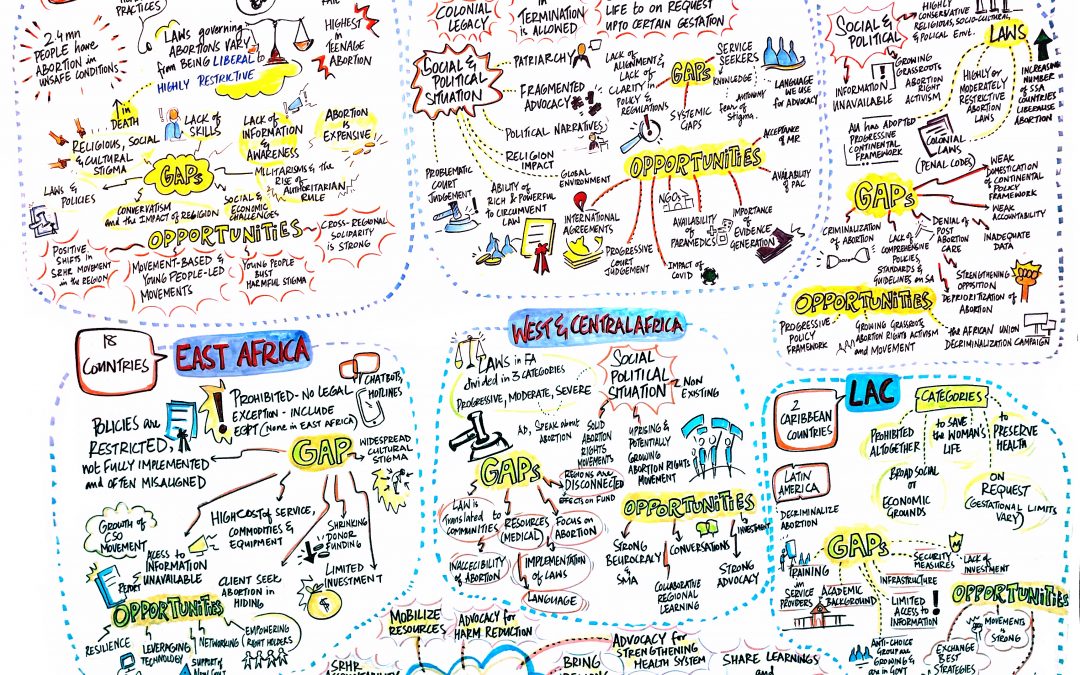 PRACTICES
2.4 mn
PEOPLE have
ABORTION in
UNSAFE CONDITIONS
LAWS governing
ABORTIONS VARY
from BEING LIBERAL to
HIGHLY RESTRICTIVE
HIGHEST
in
TEENAGE
ABORTION
in
DEATH
LACK of
SKILLS
LACK of
INFORMATION
&
AWARENESS
ABORTION
is
EXPENSIVE
RELIGIOUS, SOCIAL
& CULTURAL
STIGMA
GAPs
MILITARISMS & the
RISE of
AUTHORITARIAN
RULE
LAWS &
POLICIES
CONVERVATISM
and the IMPACT of RELIGION
SOCIAL &
ECONOMIC
CHALLENGES
OPPORTUNITIES
CROSS-REGIONAL
SOLIDARITY
is STRONG
POSITIVE
SHIFTS in
SRHR MOVEMENT
in the REGION
MOVEMENT-BASED &
YOUNG PEOPLE-LED
MOVEMENTS
YOUNG PEOPLE
BUST
HARMFUL STIGMA
COLONIAL
LEGACY
in
TERMINATION
is ALLOWED
LIFE to ON REQUEST
UPTO CERTAIN GESTATION
SOCIAL &
POLITICAL
SITUATION
PATRIARCHY
FRAGMENTED
ADVOCACY
POLITICAL NARRATIVES
RELIGION
IMPACT
GLOBAL
ENVIRONMENT
PROBLEMATIC
COURT
JUDGEMENT
ABILITY of
RICH & POWERFUL
to CIRCUMVENT
LAW
LACK of
ALIGNMENT &
LACK of
CLARITY in
POLICY &
REGULATIONS
GAPs
SERVICE
SEEKERS
KNOWLEDGE
AUTONOMY
Fear of
STIGMA
SYSTEMIC
GAPS
LANGUAGE
WE USE
for ADVOCACY
OPPORTUNITIES
ACCEPTANCE
of MR
AVAILABILITY
of PAC
INTERNATIONAL
AGREEMENTS
PROGRESSIVE
COURT
JUDGEMENT
NGOs
AVAILABILITY
of
PARAMEDICS
IMPACT of
COVID
IMPORTANCE
of
EVIDENCE
GENERATION
SOCIAL &
POLITICAL
HIGHLY
CONSERVATIVE
RELIGIOUS, SOCIO-CULTURAL
& POLICAL Envt.
LAWS
INFORMATION
UNAVAILABLE
GROWING
GRASSROOTS
ABORTION
RIGHT
ACTIVISM
HIGHLY or
MODERATELY
RESTRICTIVE
ABORTION
LAWS
INCREASING
NUMBER
of SSA
COUNTRIES
LIBERALISE
ABORTION
AU has ADOPTED
PROGRESSIVE
CONTINENTAL
FRAMEWORK
COLONIAL
LAWS
(PENAL CODES)
GAPs
WEAK
DOMESTICATION
of CONTINENTAL
POLICY
FRAMEWORK
WEAK
ACCOUNTABILITY
INADEQUATE
DATA
CRIMINALIZATION
of ABORTION
LACK of
COMPREHENSIVE
POLICIES,
STANDARDS &
GUIDELINES on SA
DENIAL of
POST
ABORTION
CARE
STRENGTHENING
OPPOSITION
DEPRIORITIZATION of
ABORTION
OPPORTUNITIES
PROGRESSIVE
POLICY
FRAMEWORK
GROWING GRASSROOTS
ABORTION RIGHTS ACTIVISM
and MOVEMENT
the AFRICAN UNION
DECRIMINALIZATION CAMPAIGN
18
COUNTRIES
EAST AFRICA
POLICIES are
RESTRICTED,
not FULLY IMPLEMENTED
and OFTEN MISALIGNED
PROHIBITED - NO LEGAL
EXCEPTION - INCLUDE
EGPT (NONE in EAST AFRICA)
CHATBOTS,
HOTLINES
GAP
WIDESPREAD
CULTURAL
STIGMA
GROWTH of
CSO
MOVEMENT
HIGH COST of SERVICE,
COMMODITIES &
EQUIPMENT
ACCESS to
INFORMATION
UNAVAILABLE
REPORT
CLIENT SEEK
ABORTION in
HIDING
SHRINKING
DONOR
FUNDING
LIMITED
INVESTMENT
OPPORTUNITIES
RESILIENCE
LEVERAGING
TECHNOLOGY
NETWORKING
EMPOWERING
RIGHT HOLDERS
SUPPORT of
WEST & CENTRAL AFRICA
LAWS in FA
divided in 3 CATEGORIES
PROGRESSIVE, MODERATE, SEVERE
SOCIAL
POLITICAL
SITUATION
NON
EXISTING
AD, SPEAK about
ABORTION
SOLID
ABORTION
RIGHTS
MOVEMENTS
UPRISING &
POTENTIALLY
GROWING
ABORTION RIGHTS
MOVEMENT
GAPs
REGIONS are
DISCONNECTED
EFFECTS on FUND
LAW is
TRANSLATED to
COMMUNITIES
RESOURCES
(MEDICAL)
FOCUS on
ABORTION
INACCECIBILITY
of ABORTION
IMPLEMENTATION
of LAWS
LANGUAGE
OPPORTUNITIES
STRONG
BEUROCRALY
in
SMTA
CONVERSATIONS
INVESTMENT
COLLABORATIVE
REGIONAL
LEARNING
STRONG
ADVOCACY
LAC
2
CARIBBEAN
COUNTRIES
CATEGORIES
PROHIBITED
ALTOGETHER
to SAVE the
WOMAN'S
LIFE
to
PRESERVE
HEALTH
BROAD SOCIAL
or
ECONOMIC
GROUNDS
ON
REQUEST
(GESTATIONAL LIMITS
VARY)
LATIN
AMERICA
DECRIMINALIZE
ABORTION
GAPs
SECURITY
MEASURES
LACK of
INVESTMENT
TRAINING
in
SERVICE
PROVIDERS
ACADEMIC
BACKGROUND
INFRASTRUCTURE
LIMITED
ACCESS to
INFORMATION
OPPORTUNITIES
ANTI-CHOICE
GROUP are
GROWING &
are in GOVT
MOVEMENTS
is
STRONG
EXCHANGE
BEST
STRATEGIES
MOBILIZE
RESOURCES
ADVOCACY for
HARM REDUCTION
ADVOCACY for
STRENGTHENING
HEALTH SYSTEM
SRHR
BRING
SHARE LEARNINGS
and